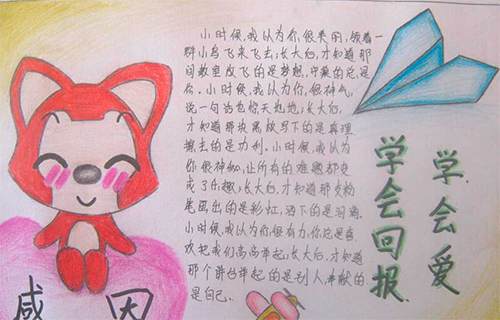 小时候,我以为你很美丽,领着一
群小鸟飞来飞去;长大后,才知道那
间教室放飞的是梦想,守巢的总是
你。小时候,我以为你很神气,
说一句话也惊天地地;长大后,
才知道那块黑板写下的是真理
擦去的是功利。小时候,我以为
你很神秘,让所有的难题都变
成了乐趣;长大后,才知道那支粉
笔画出的是彩虹,洒下的是泪滴.
小时候,我以为你很有力,你总是喜
欢把我们高高举起;长大后,才知道
那个讲台举起的是别人,奉献的
是自己.
学会爱
学会回报
感 因